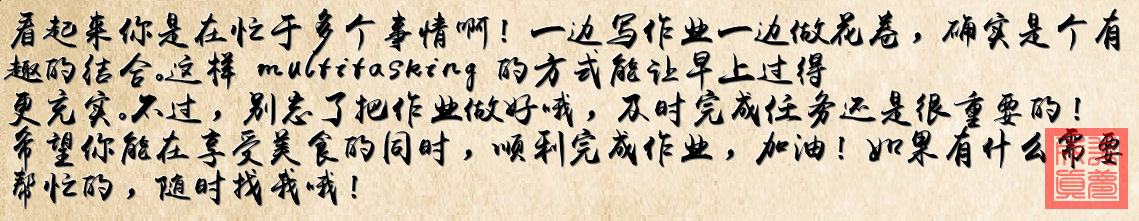 看起来你是在忙于多个事情啊！一边写作业一边做花卷，确实是个有
趣的结合。这样 multitasking 的方式能让早上过得
更充实。不过，别忘了把作业做好哦，及时完成任务还是很重要的！
希望你能在享受美食的同时，顺利完成作业，加油！如果有什么需要
帮忙的，随时找我哦！